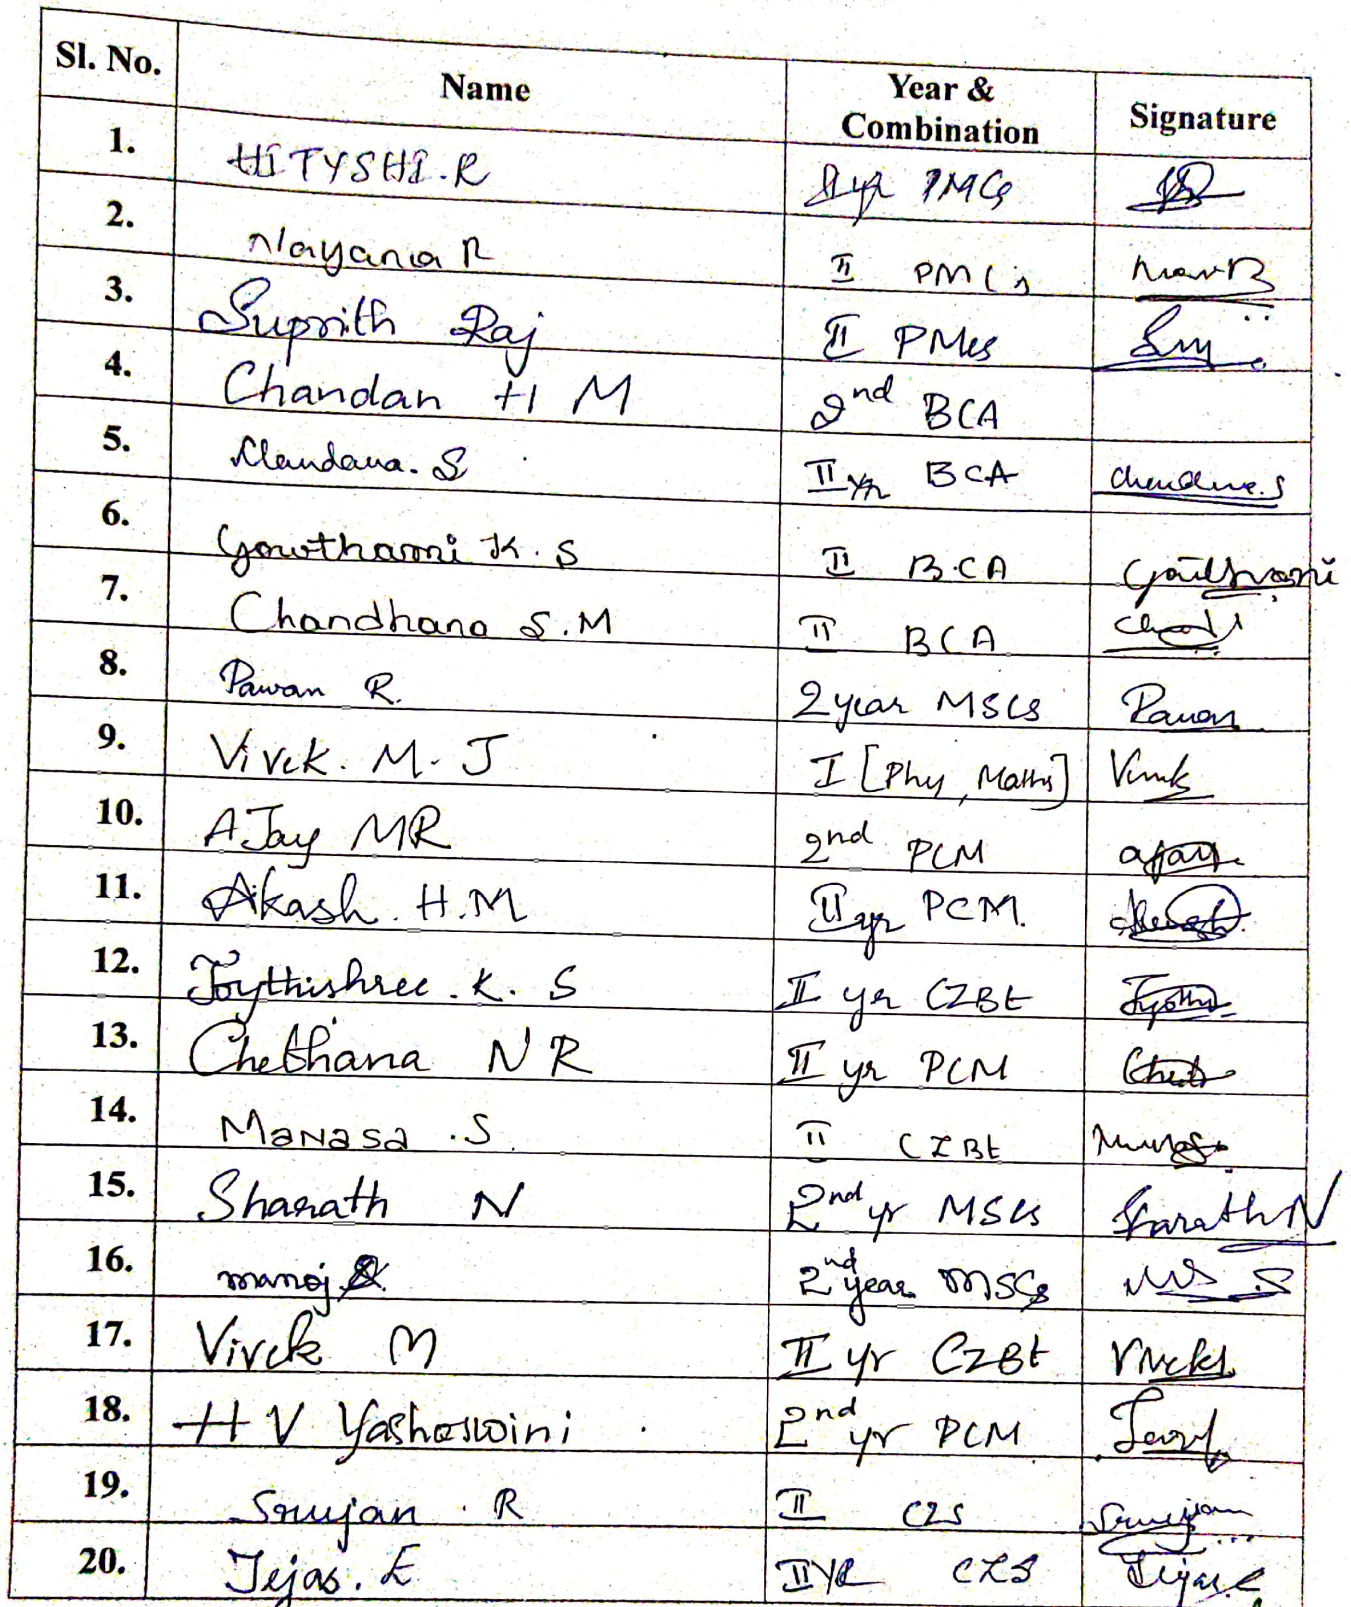 Sl. No. Name Year & Combination Signature
1. HITYSHI.R II yr PMCs
2. Nayana R II PMCs
3. Suprith Raj II PMCs
4. Chandan H M 2nd BCA
5. Chandana. S II Yr BCA Chandana.S
6. Gowthami K. S II B.CA
7. Chandhana S.M II BCA
8. Pawan R. 2 year MSCs Pawan
9. Vivek. M. J I [Phy, Maths] Vivek
10. AJay MR 2nd PCM ajay.
11. Akash. H.M II yr PCM.
12. Joythishree. K. S II yr CZBt
13. Chethana N R II yr PCM
14. Manasa .S II CZBt
15. Sharath N 2nd yr MSCs Sharath N
16. manoj 2nd year MSCs
17. Vivek M II yr CZBt
18. H V Yashaswini 2nd yr PCM
19. Srujan . R II CZS Srujan
20. Tejas. E II YR CZS Tejas.E